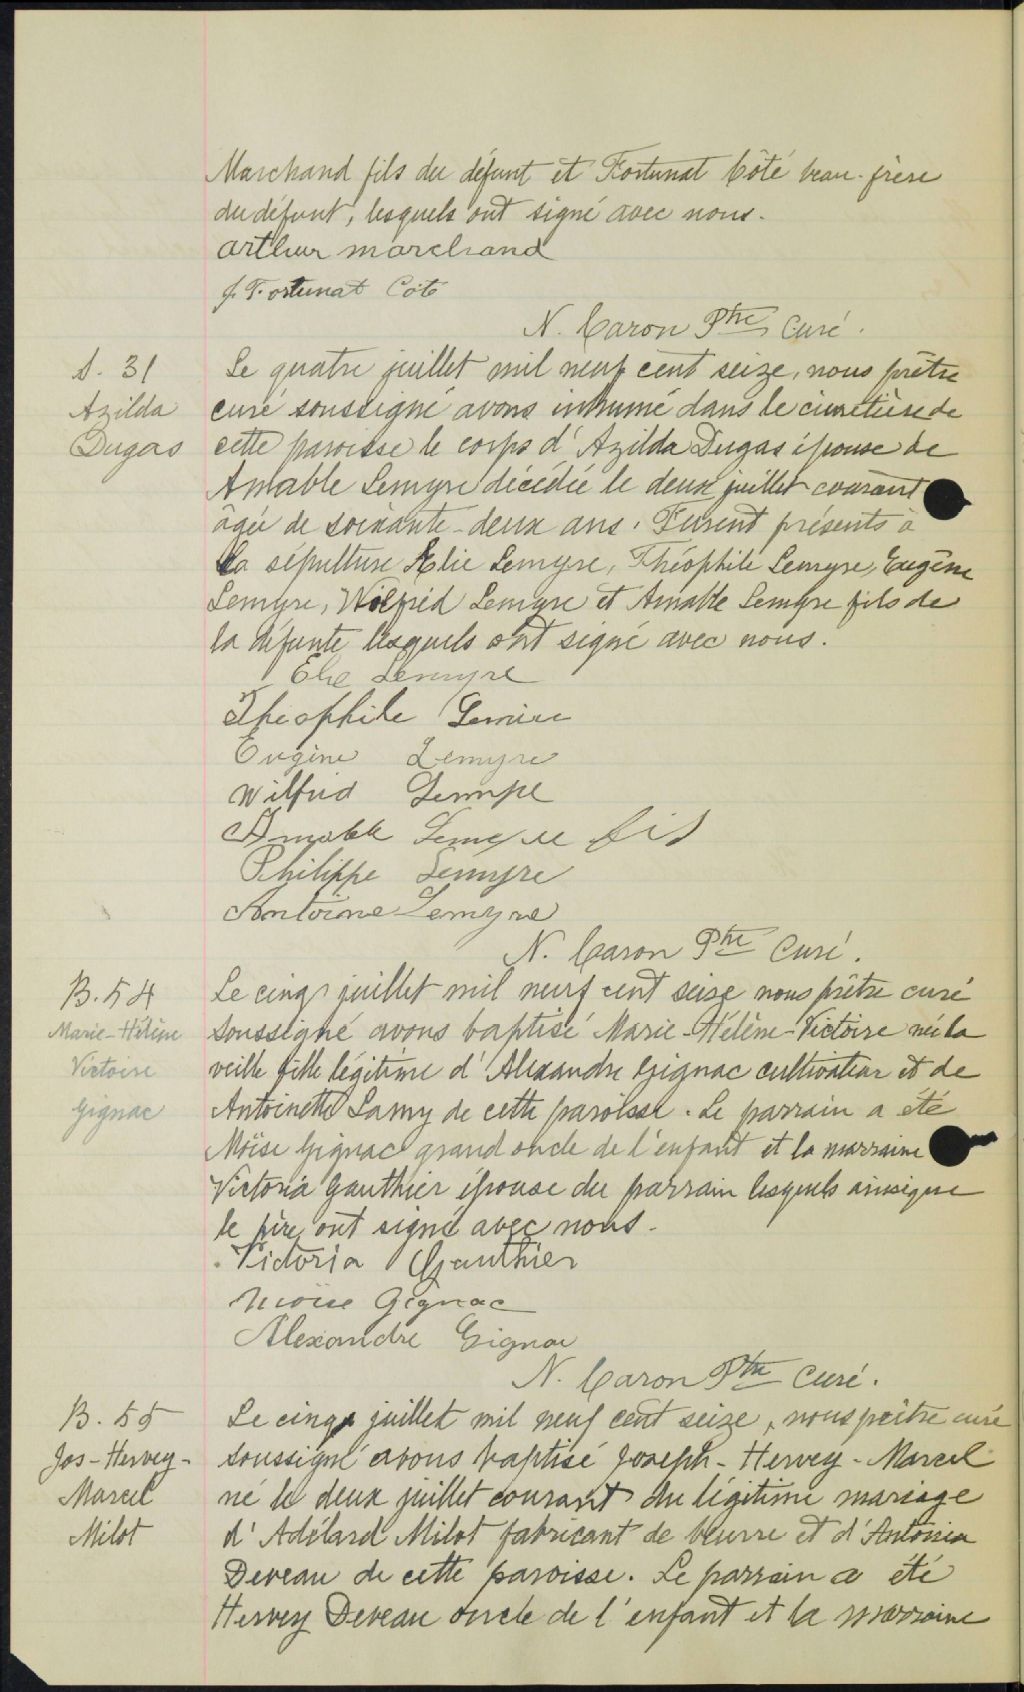 Marchand fils du défunt et Fortunat Côté beau-frère
du défunt, lesquels ont signé avec nous.
arthur marchand
J. Fortunat Coté
N. Caron Ptre Curé.
S. 31
Azilda
Dugas
Le quatre juillet mil neuf cent seize, nous prêtre
curé soussigné avons inhumé dans le cimetière de
cette paroisse le corps d'Azilda Dugas épouse de
Amable Lemyre décédée le deux juillet courant
âgée de soixante-deux ans. Furent présents à
la sépulture Elie Lemyre, Théophile Lemyre, Eugène
Lemyre, Wilfrid Lemyre et Amable Lemyre fils de
la défunte lesquels ont signé avec nous.
Elie Lemyre
Theophile Lemire
Eugène Lemyre
Wilfrid Lemyre
Amable Lemyre fils
Philippe Lemyre
Antoine Lemyre
N. Caron Ptre Curé.
B. 54
Marie-Hélène
Victoire
Gignac
Le cinq juillet mil neuf cent seize nous prêtre curé
soussigné avons baptisé Marie-Hélène-Victoire née la
veille fille légitime d'Alexandre Gignac cultivateur et de
Antoinette Lamy de cette paroisse. Le parrain a été
Moïse Gignac grand oncle de l'enfant et la marraine
Victoria Gauthier épouse du parrain lesquels ainsi que
le père ont signé avec nous.
Victoria Gauthier
Moïse Gignac
Alexandre Gignac
N. Caron Ptre Curé.
B. 55
Jos-Hervey-
Marcel
Milot
Le cinq juillet mil neuf cent seize, nous prêtre curé
soussigné avons baptisé Joseph-Hervey-Marcel
né le deux juillet courant du légitime mariage
d'Adélard Milot fabricant de beurre et d'Antonia
Deveau de cette paroisse. Le parrain a été
Hervey Deveau oncle de l'enfant et la marraine